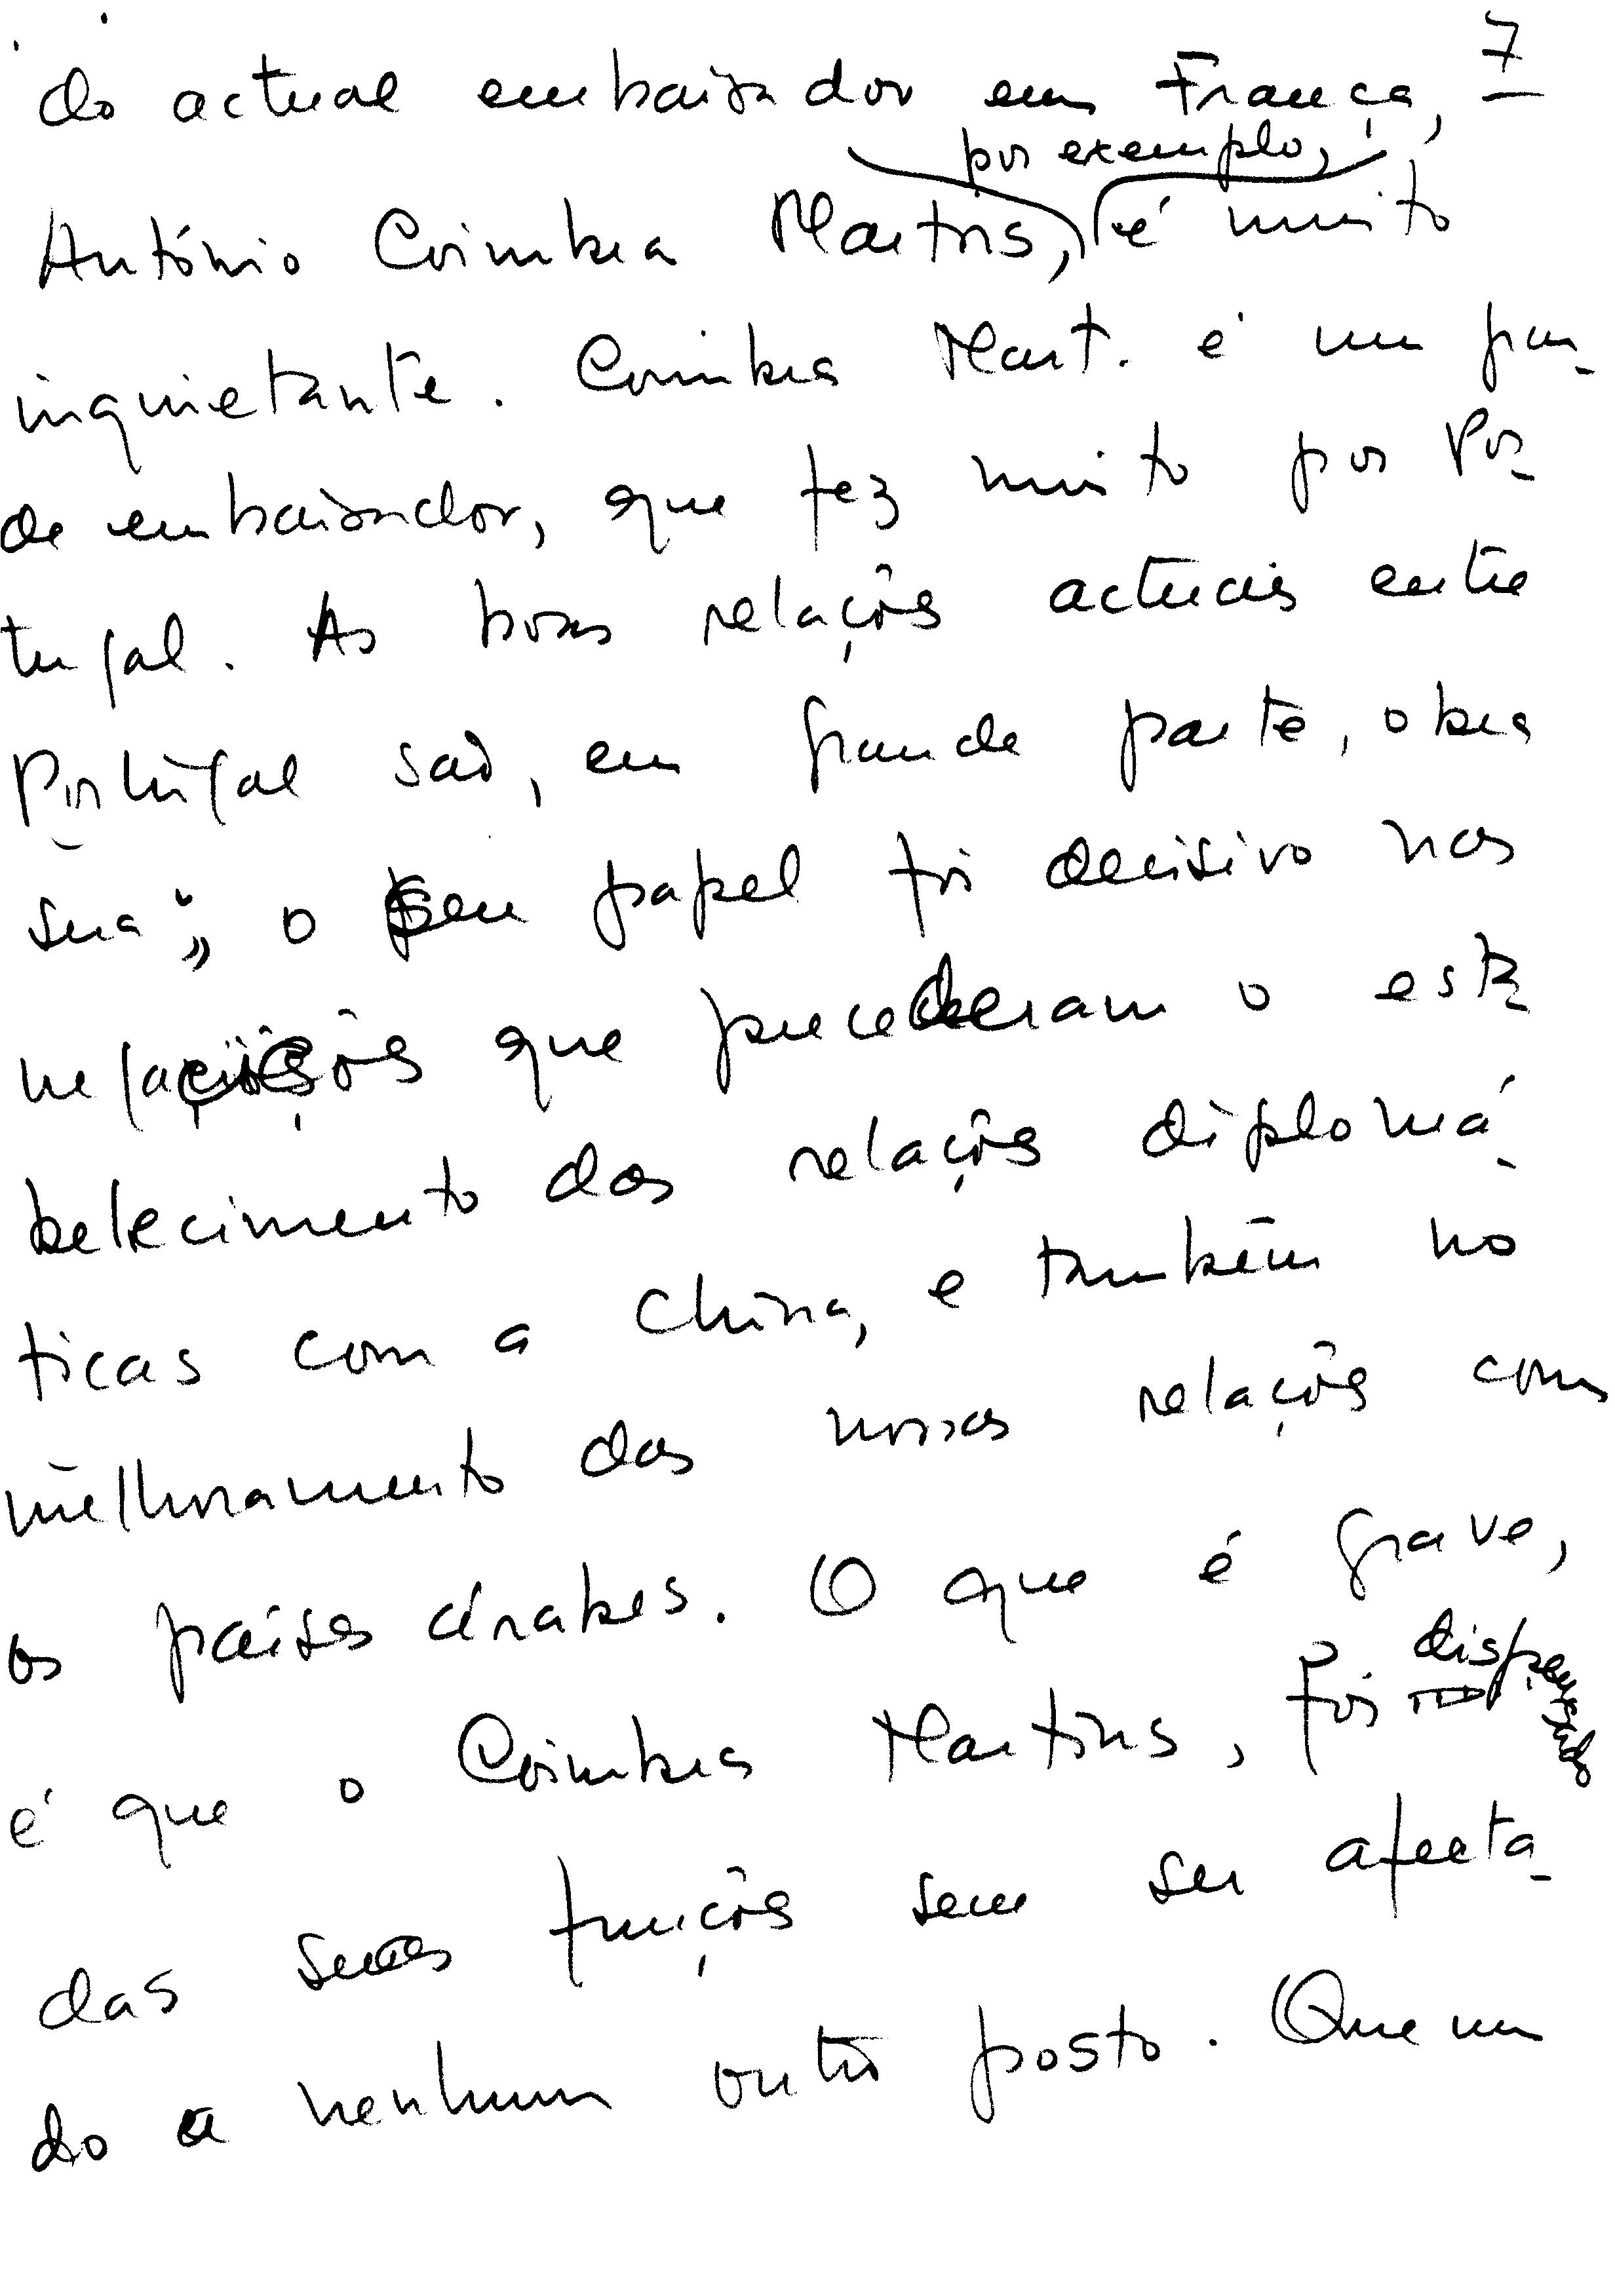 7
do actual embaixador em França,
por exemplo,
António Coimbra Martins, é muito
inquietante. Coimbra Mart. é um gran-
de embaixador, que fez muito por Por-
tugal. As boas relações actuais entre
Portugal são, em grande parte, obra
sua; o seu papel foi decisivo nas
negociações que precederam o esta-
belecimento das relações diplomá-
ticas com a China, e também no
melhoramento das nossas relações com
os países árabes. O que é grave,
é que o Coimbra Martins, foi dispensado
das suas funções sem ser afecta-
do a nenhum outro posto. Que um